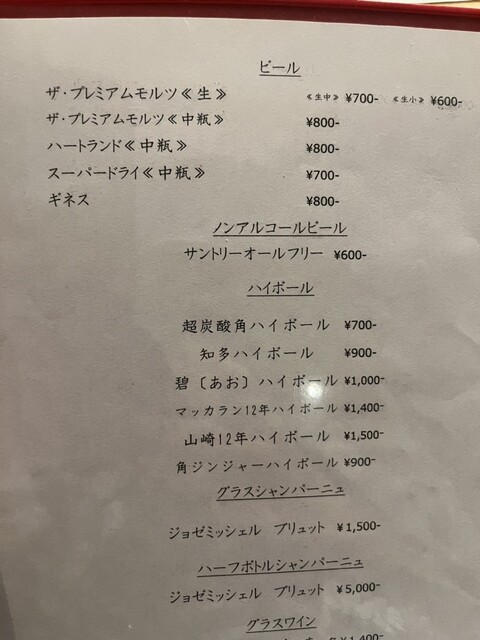 ビール
ザ・プレミアムモルツ《生》 《生中》 ¥700- 《生小》 ¥600-
ザ・プレミアムモルツ《中瓶》 ¥800-
ハートランド《中瓶》 ¥800-
スーパードライ《中瓶》 ¥700-
ギネス ¥800-
ノンアルコールビール
サントリーオールフリー ¥600-
ハイボール
超炭酸角ハイボール ¥700-
知多ハイボール ¥900-
碧〔あお〕ハイボール ¥1,000-
マッカラン12年ハイボール ¥1,400-
山崎12年ハイボール ¥1,500-
角ジンジャーハイボール ¥900-
グラスシャンパーニュ
ジョゼミッシェル ブリュット ¥1,500-
ハーフボトルシャンパーニュ
ジョゼミッシェル ブリュット ¥5,000-
グラスワイン
¥1,400-